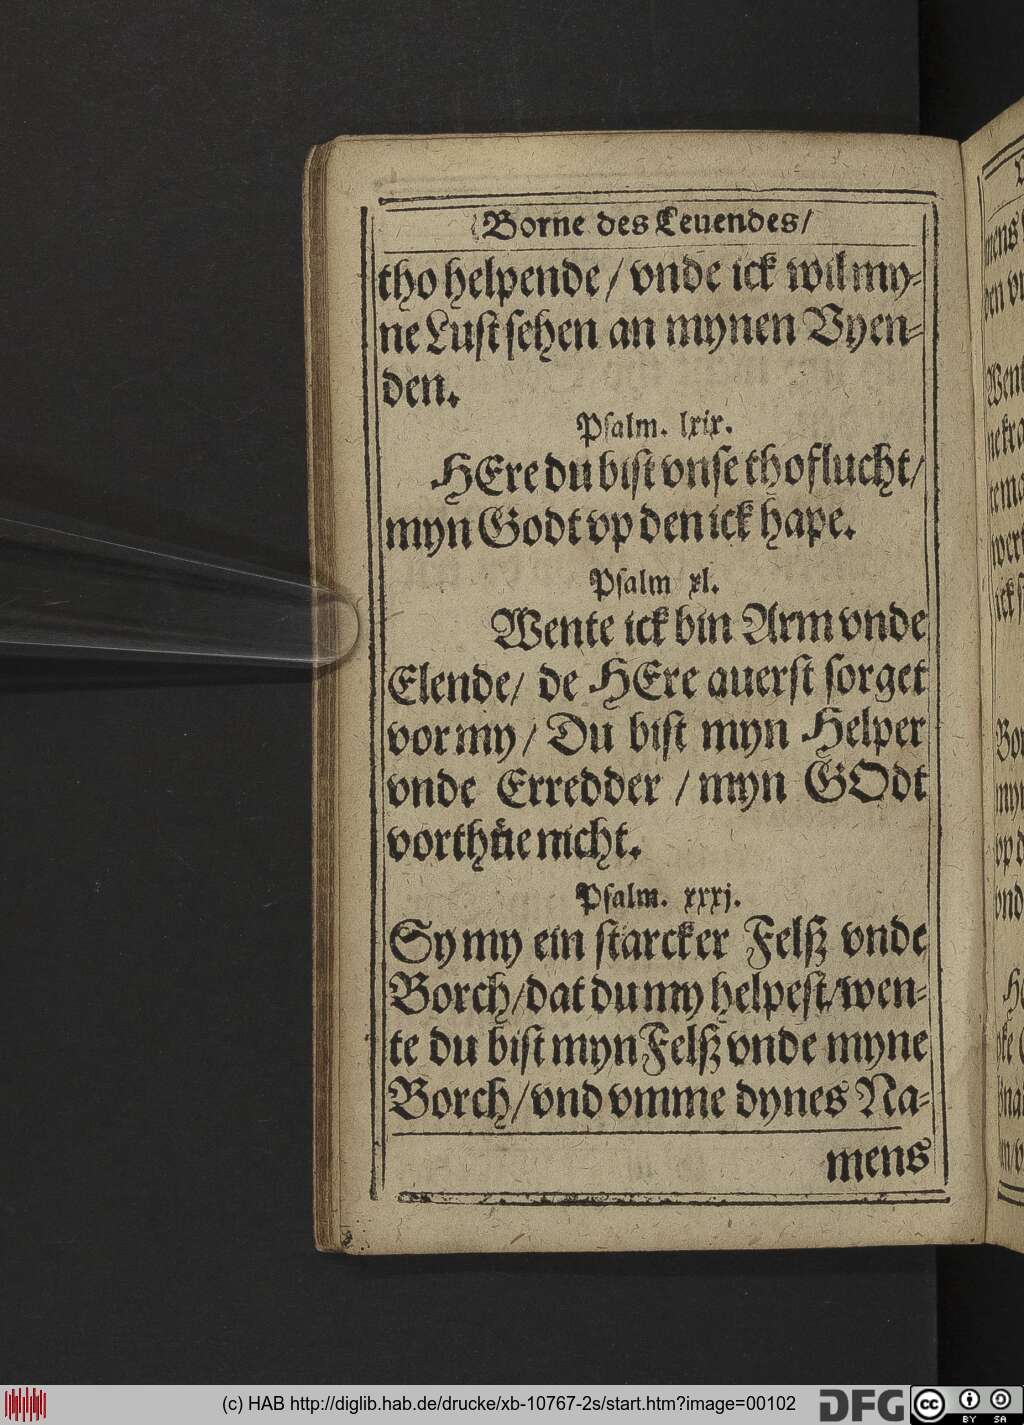 Borne des Leuendes/
tho helpende/ vnde ick wil my-
ne Lust sehen an mynen Vyen-
den.
Psalm. lxix.
HEre du bist vnse thoflucht/
myn Godt vp den ick hape.
Psalm xl.
Wente ick bin Arm vnde
Elende/ de HEre auerst sorget
vor my/ Du bist myn Helper
vnde Erredder / myn GOdt
vorthüe nicht.
Psalm. xxxj.
Sy my ein starcker Felsz vnde
Borch/dat du my helpest/wen-
te du bist myn Felsz vnde myne
Borch/vnd vmme dynes Na-
mens
(c) HAB http://diglib.hab.de/drucke/xb-10767-2s/start.htm?image=00102
DFG
cc
BY SA